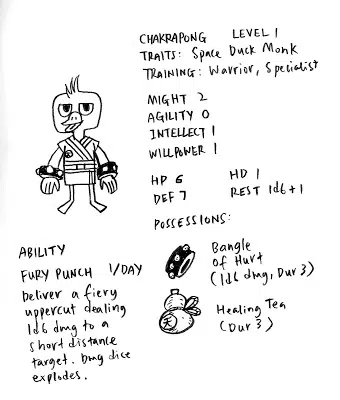 CHAKRAPONG LEVEL 1
TRAITS: Space Duck Monk
TRAINING: Warrior, Specialist
MIGHT 2
AGILITY 0
INTELLECT 1
WILLPOWER 1
HP 6 HD 1
DEF 7 REST 1d6+1
POSSESSIONS:
Bangle
of Hurt
(1d6 dmg, Dur 3)
天
Healing Tea
(Dur 3)
ABILITY
FURY PUNCH 1/DAY
Deliver a fiery
uppercut dealing
1d6 dmg to a
short distance
target. Dmg dice
explodes.